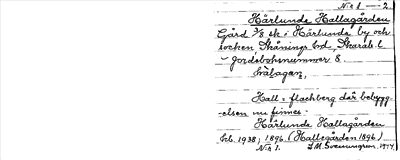 No 1 — 2
Härlunda Hallagården
Gård 3/8 sk i Härlunda by och
socken Skånings hd, Skarab. l
- Jordebokenummer 8

Hall = flachberg där bebygg-
elsen nu finnes.
Härlunda Hallagården
Eeb. 1938, 1896. (Hallegården 1896)
No 1.